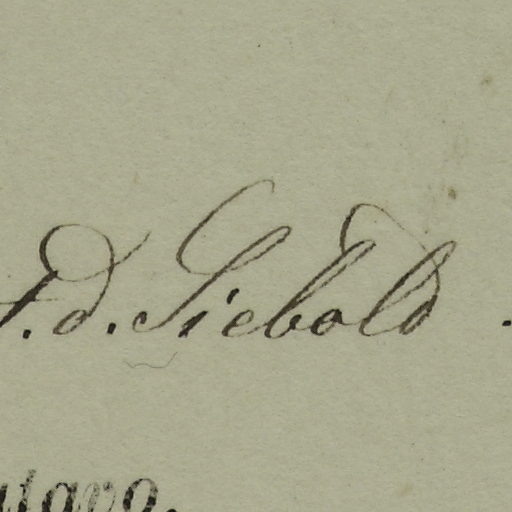 t. d. Siebold.